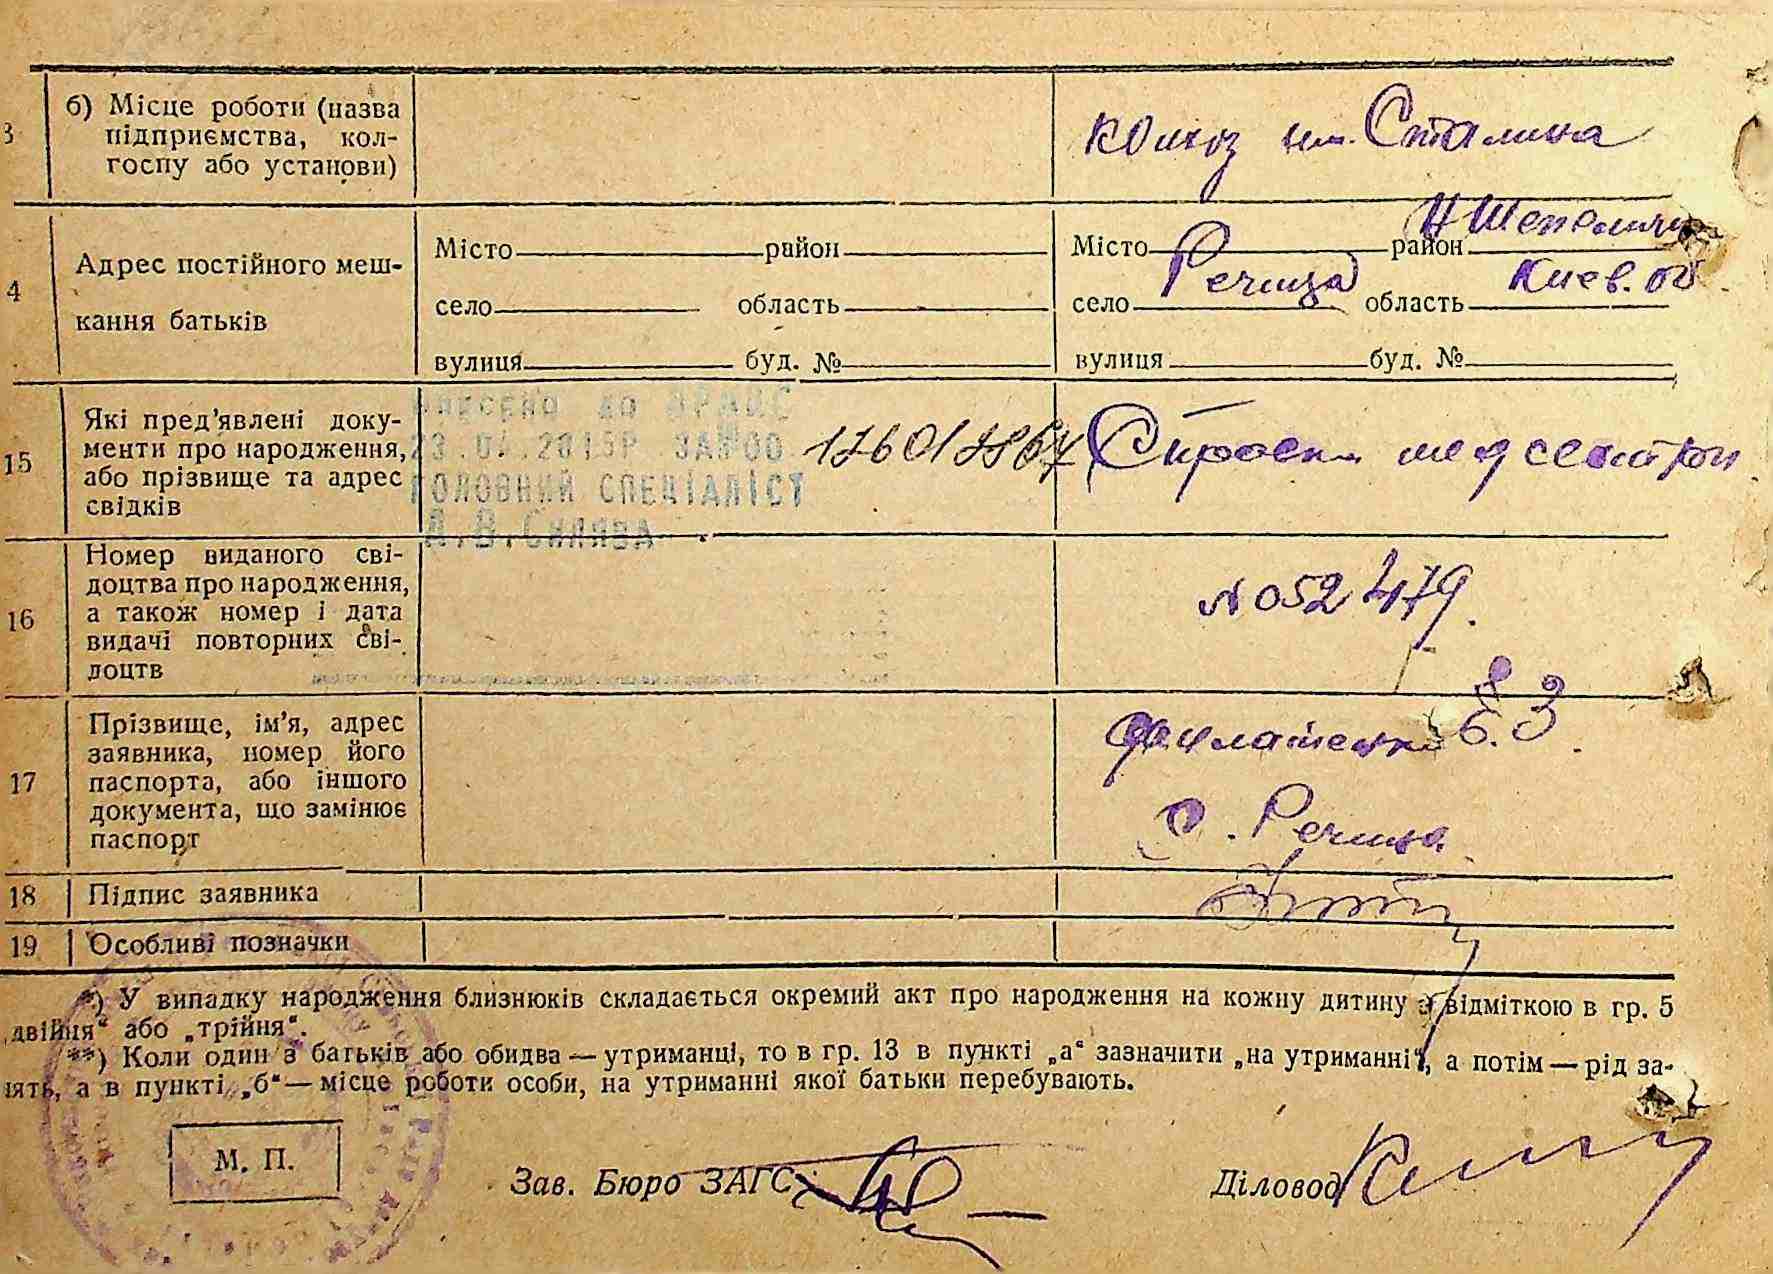 3 б) Місце роботи (назва
підприємства, кол-
госпу або установи)
колхоз им. Сталина
4 Адрес постійного меш-
кання батьків
Місто район
село область
вулиця буд. №
Місто район Н Шепеличи
село Речица область Киев. об
вулиця буд. №
15 Які пред’явлені доку-
менти про народження,
або прізвище та адрес
свідків
внесено до ДРАЦС
ГОЛОВНИЙ СПЕЦІАЛІСТ
медсестры
16 Номер виданого сві-
доцтва про народження,
а також номер і дата
видачі повторних сві-
доцтв
N 052479.
17 Прізвище, ім’я, адрес
заявника, номер його
паспорта, або іншого
документа, що замінює
паспорт
с. Речица
18 Підпис заявника
19 Особливі позначки
*) У випадку народження близнюків складається окремий акт про народження на кожну дитину з відміткою в гр. 5
„двійня“ або „трійня“.
**) Коли один з батьків або обидва — утриманці, то в гр. 13 в пункті „а“ зазначити „на утриманні“, а потім — рід за-
нять, а в пункті „б“ — місце роботи особи, на утриманні якої батьки перебувають.
М. П.
Зав. Бюро ЗАГС
Діловод